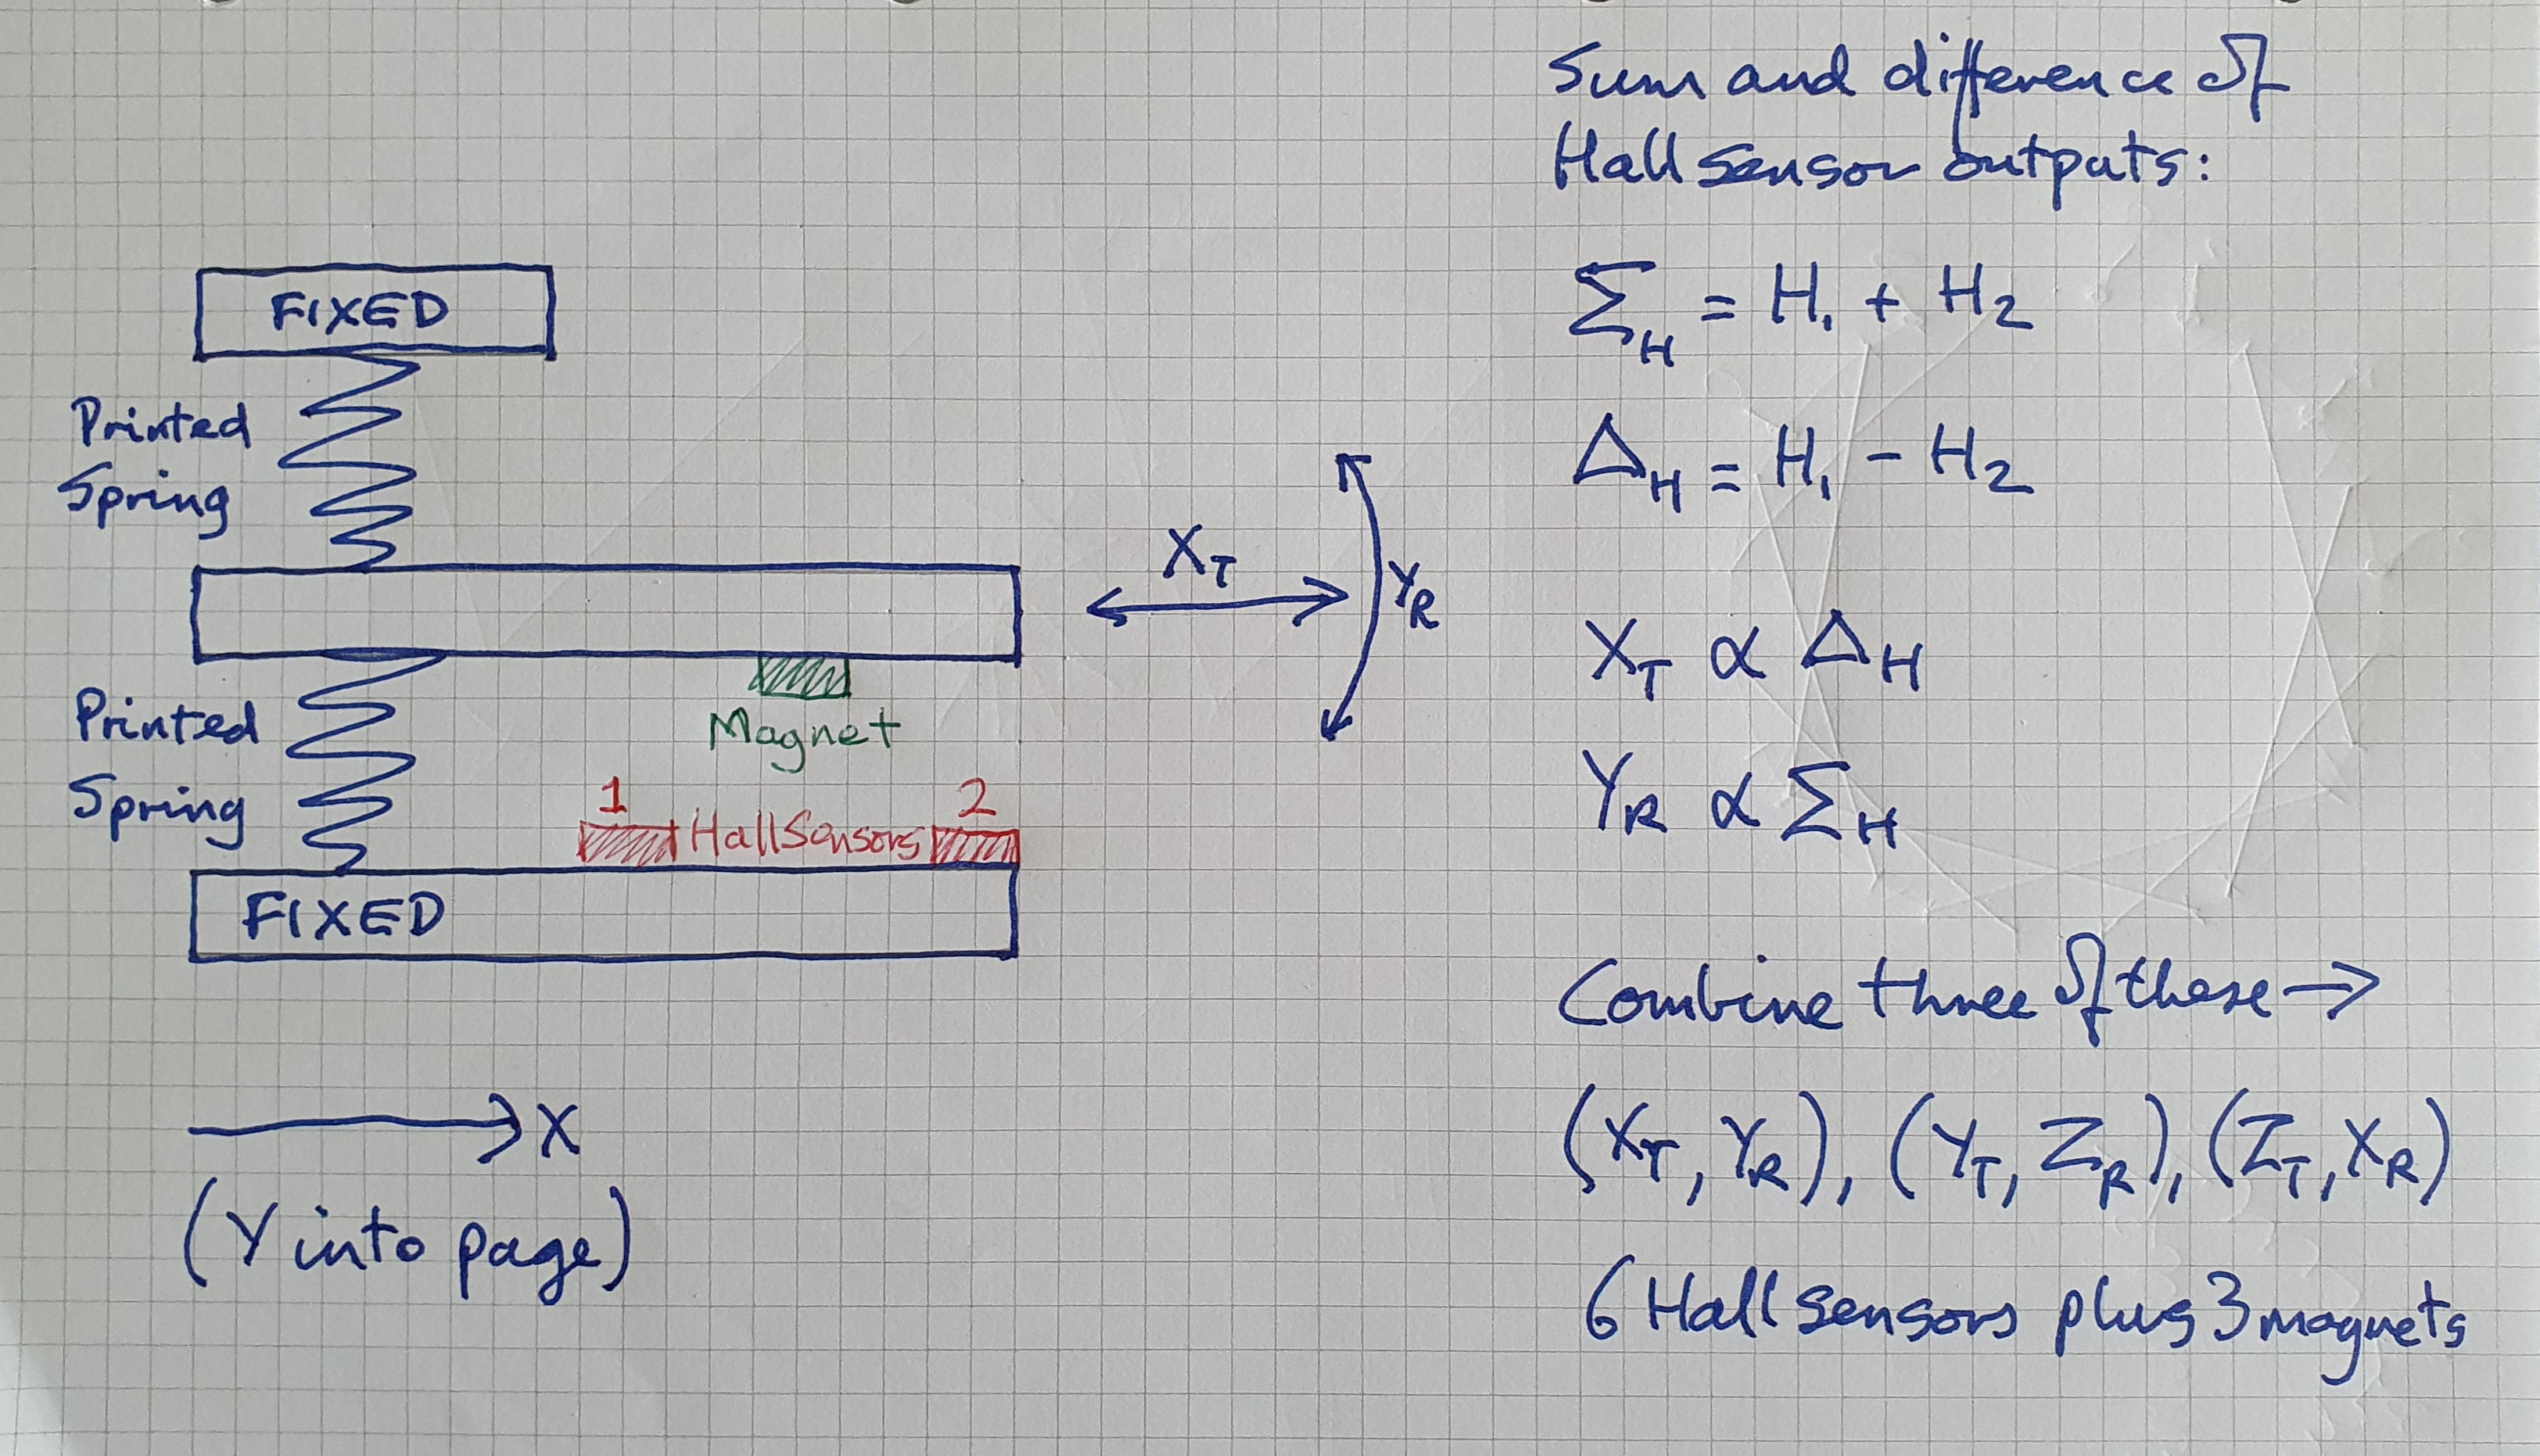 FIXED
Printed
Spring
X_T
Y_R
Magnet
Printed
Spring
1
2
Hall Sensors
FIXED
X
(Y into page)
Sum and difference of
Hall sensor outputs:
Σ_H = H₁ + H₂
Δ_H = H₁ - H₂
X_T ∝ Δ_H
Y_R ∝ Σ_H
Combine three of these →
(X_T, Y_R), (Y_T, Z_R), (Z_T, X_R)
6 Hall sensors plus 3 magnets